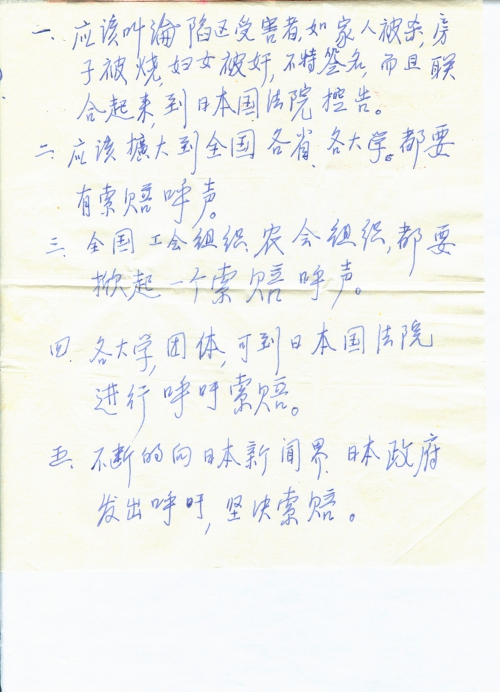 一、应该叫淪陷区受害者,如家人被杀,房
子被烧,妇女被奸,不特签名,而且联
合起来到日本国法院控告。
二、应该擴大到全国各省、各大学。都要
有索赔呼声。
三、全国工会组织、农会组织,都要
掀起一个索赔呼声。
四、各大学,团体,可到日本国法院
进行呼吁索赔。
五、不断的向日本新闻界、日本政府
发出呼吁,坚决索赔。